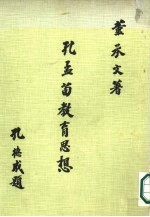 董承文著
孔孟荀教育思想
孔德成題